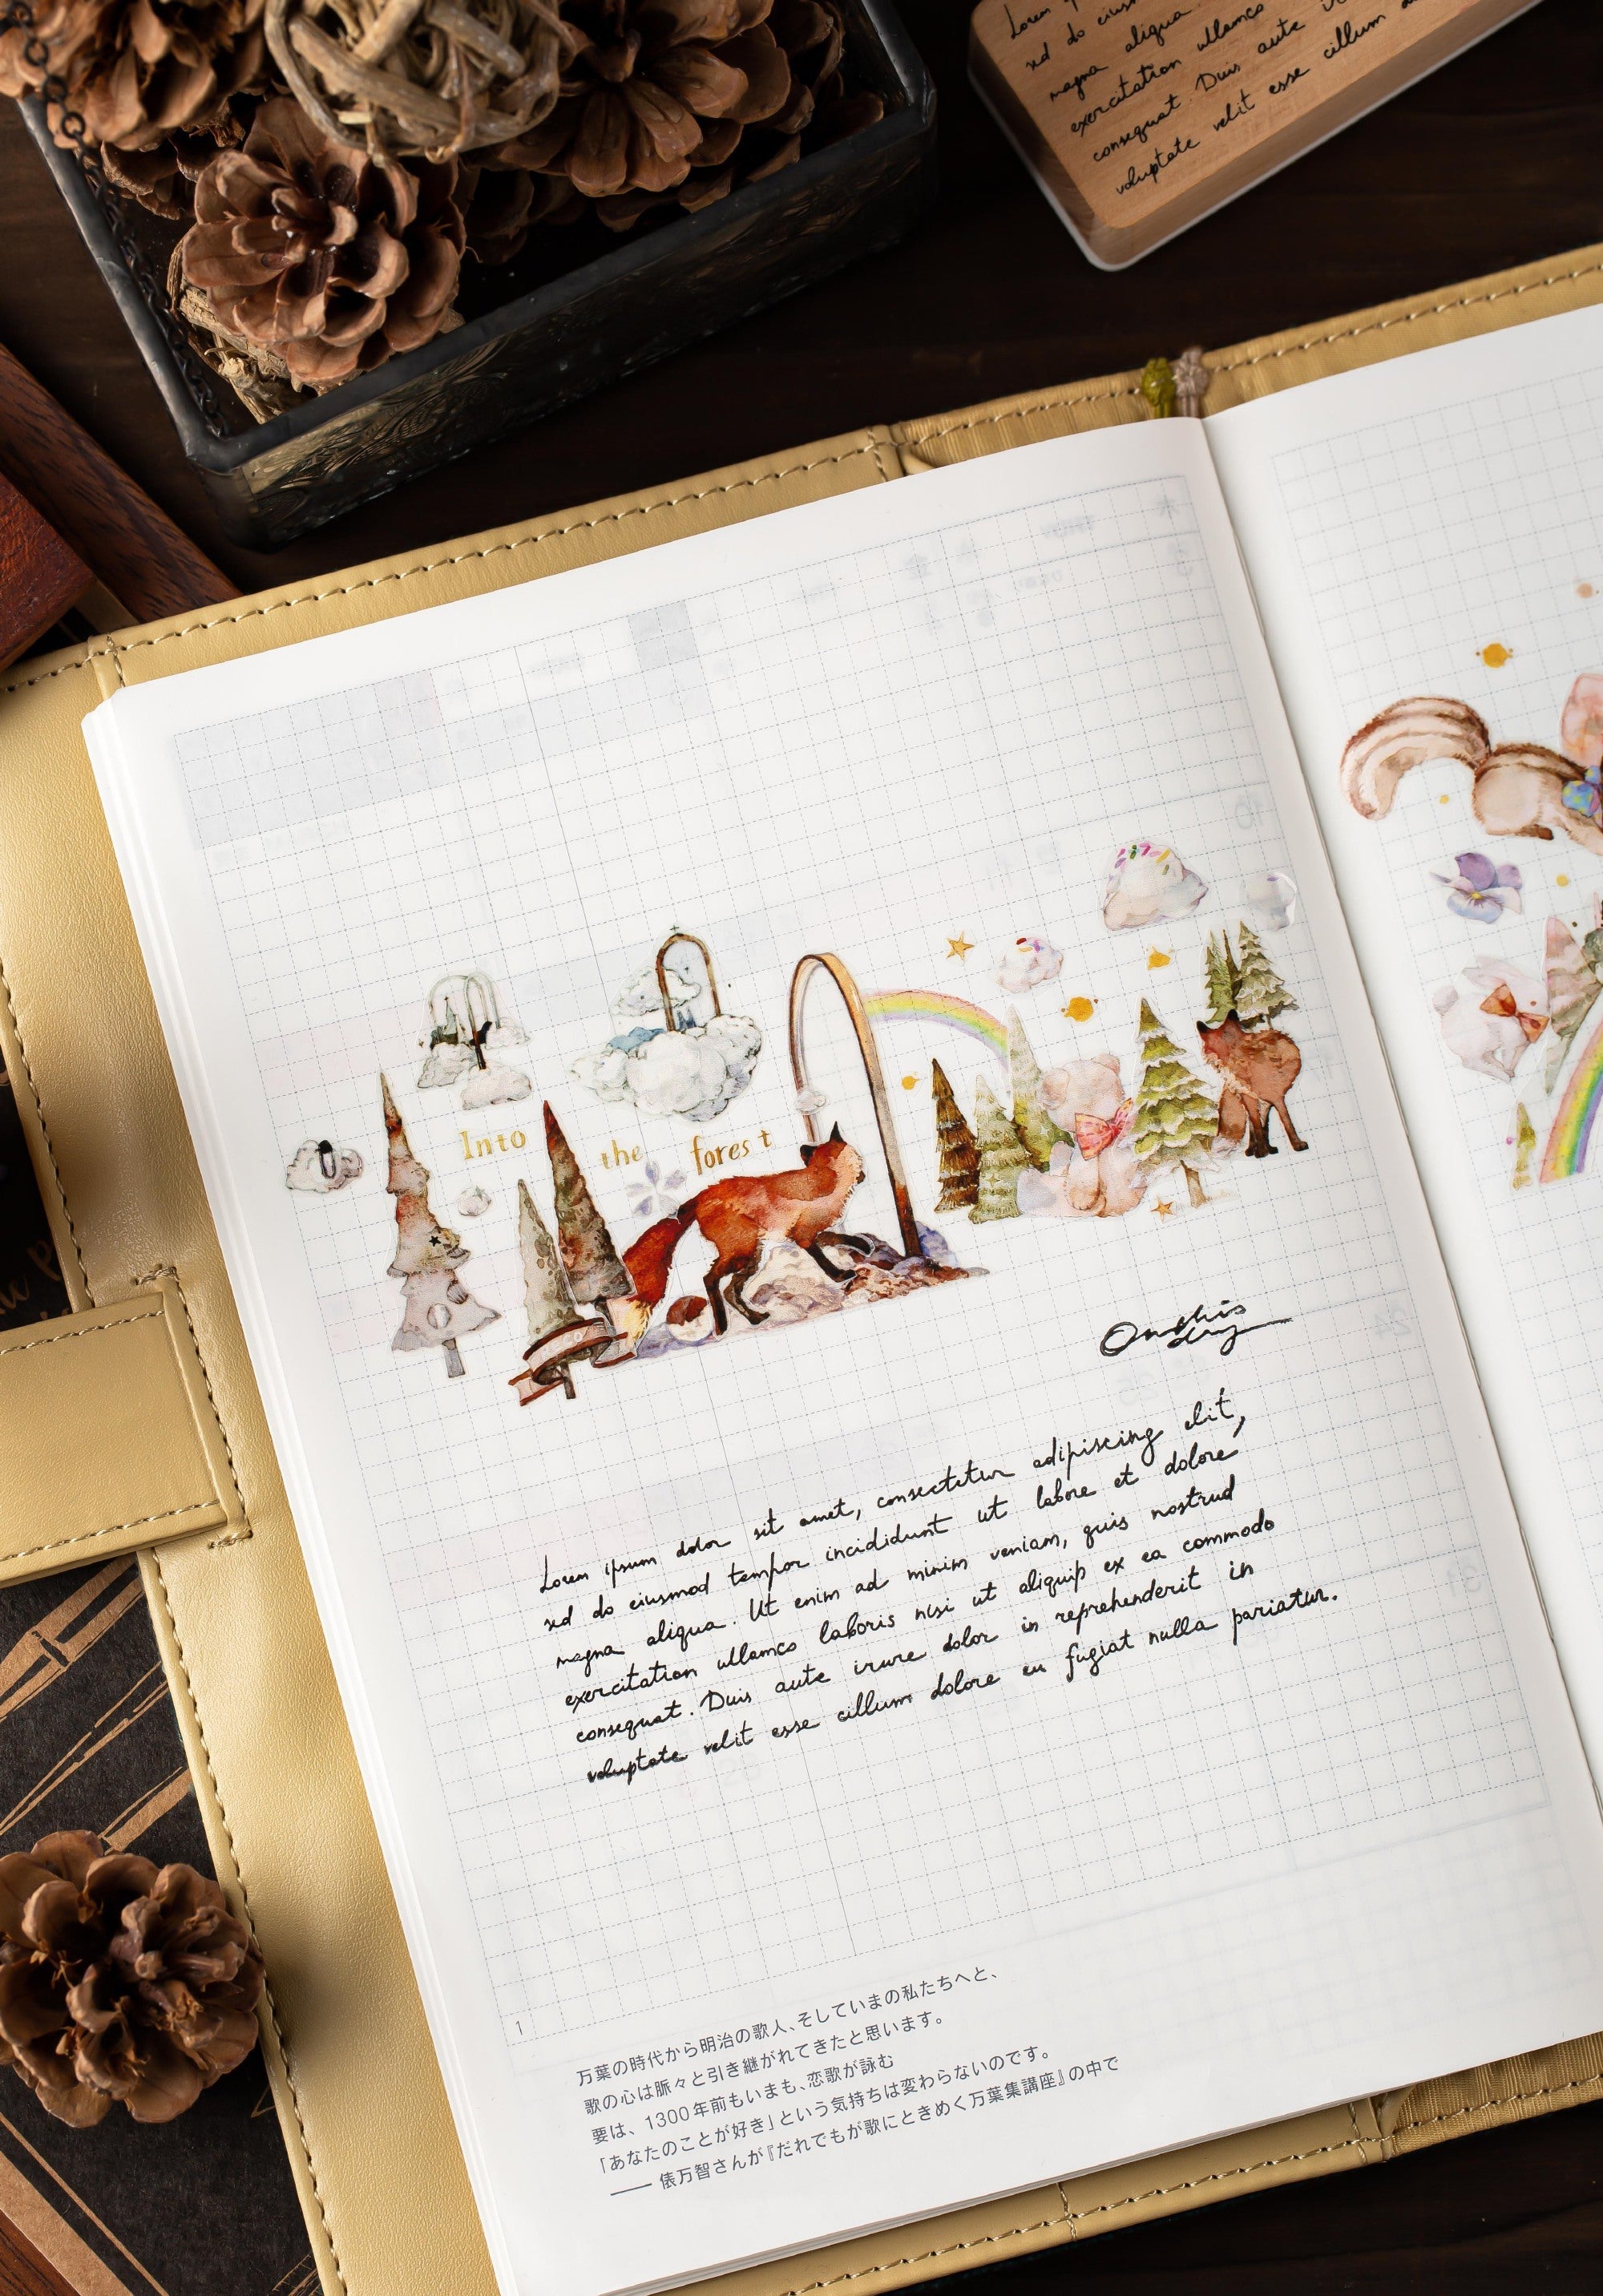 Lorem
sed do eiusm
magna aliqua
exercitation ullamco
consequat. Duis aute
voluptate velit esse cillum
Into the forest
On this day
Lorem ipsum dolor sit amet, consectetur adipiscing elit,
sed do eiusmod tempor incididunt ut labore et dolore
magna aliqua. Ut enim ad minim veniam, quis nostrud
exercitation ullamco laboris nisi ut aliquip ex ea commodo
consequat. Duis aute irure dolor in reprehenderit in
voluptate velit esse cillum dolore eu fugiat nulla pariatur.
1
万葉の時代から明治の歌人、そしていまの私たちへと、
歌の心は脈々と引き継がれてきたと思います。
要は、1300年前もいまも、恋歌が詠む
「あなたのことが好き」という気持ちは変わらないのです。
—— 俵万智さんが『だれでもが歌にときめく万葉集講座』の中で